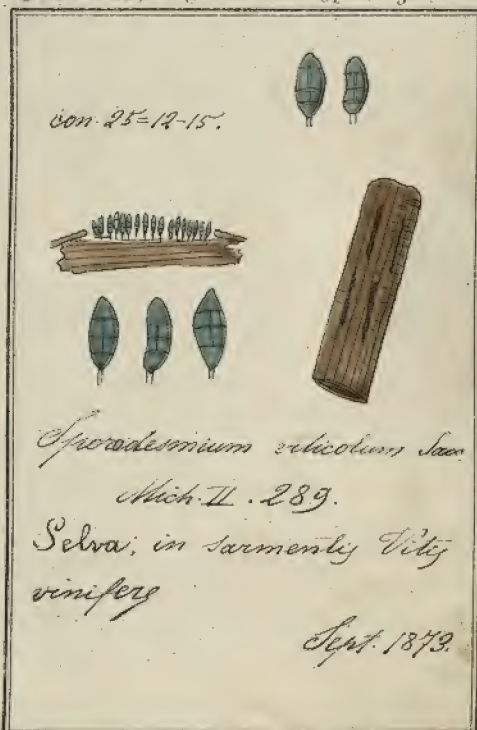 con. 25=12-15.
Sporodesmium viticolum Sacc
Mich. II. 289.
Selva; in sarmentis Vitis
viniferæ
Sept. 1873.